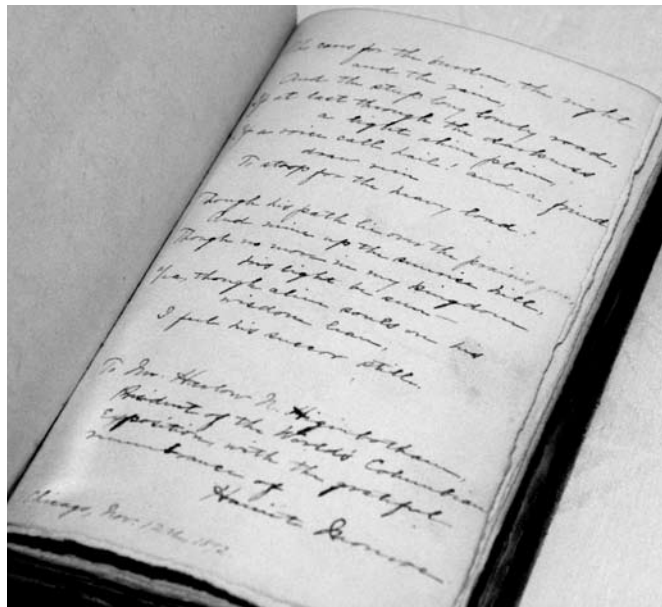 Who cares for the burden, the night
and the rain,
And the steep long lonely road,
If at last through the darkness
a light shine plain,
If a voice calls hail! and a friend
draw rein
To stoop for the heavy load?
Though his path lie over the prairie
And mine up the sunrise hills,
Though no more in my kingdom
his light be seen—
Yea, though alien souls on his
wisdom lean,
I feel his succor still.
To Mr. Harlow N. Higinbotham,
President of the World's Columbian
Exposition, with the grateful
remembrance of
Harriet Monroe
Chicago, Nov. 12th 1892